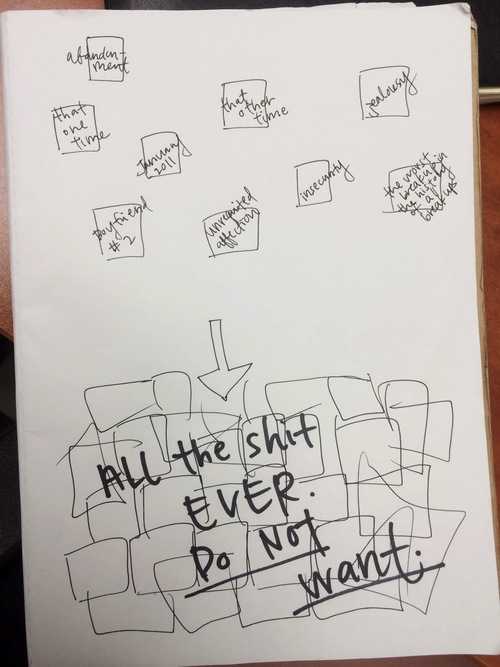 abandon-
ment
that
one
time
that
other
time
jealousy
January
2011
insecurity
the worst
breakup in
the history
of
breakups
boyfriend
#2
unrequited
affection
ALL the shit
EVER.
DO NOT
want.